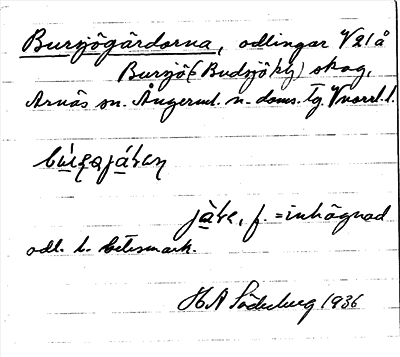 Bursjögärdorna, odlingar V21å
Bursjö (Budsjö by) skog,
Arnäs sn. Ångerml. n. doms. Tg. Vnorrl. l.
f. = inhägnad
odl. l. betesmark.
H A Söderberg 1936